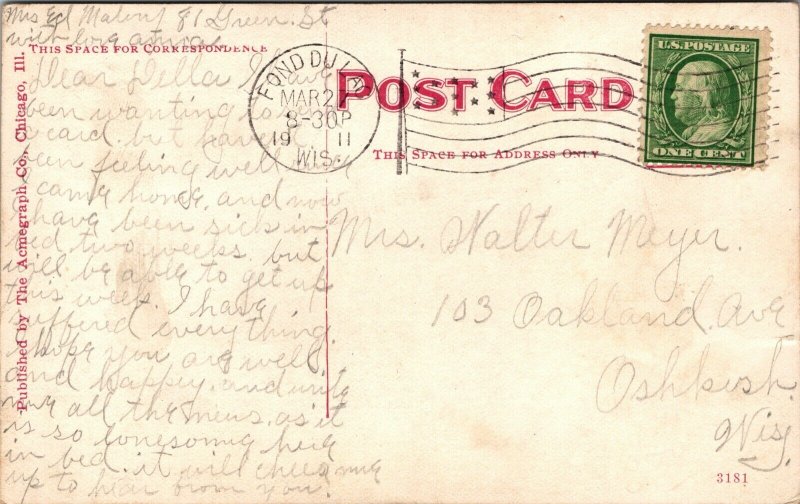 Mrs Ed 81 Green. St
with love
THIS SPACE FOR CORRESPONDENCE
Dear Della I have
been wanting to
a card. but haven't
been feeling well since
I came home, and now
I have been sick in
bed two weeks. but
will be able to get up
this week. I have
suffered everything.
I hope you are well,
and happy, and write
me all the news, as it
is so lonesome here
in bed. it will cheer me
up to hear from you.
Published by The Acmegraph Co., Chicago, Ill.
FOND DU LAC
MAR 2
8-30P
19 11
WIS.
POST CARD
THIS SPACE FOR ADDRESS ONLY
U.S. POSTAGE
ONE CENT
Mrs. Walter Meyer.
103 Oakland. Ave
Oshkosh.
Wis.
3181